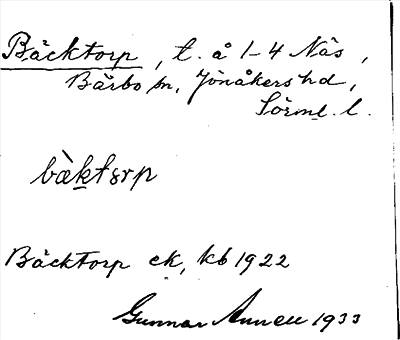 Bäcktorp, t. å 1-4 Näs,
Bärbo sn, Jönåkers hd,
Sörml. l.
bæ̀ktɔrp
Bäcktorp ek, kb 1922
Gunnar 1933